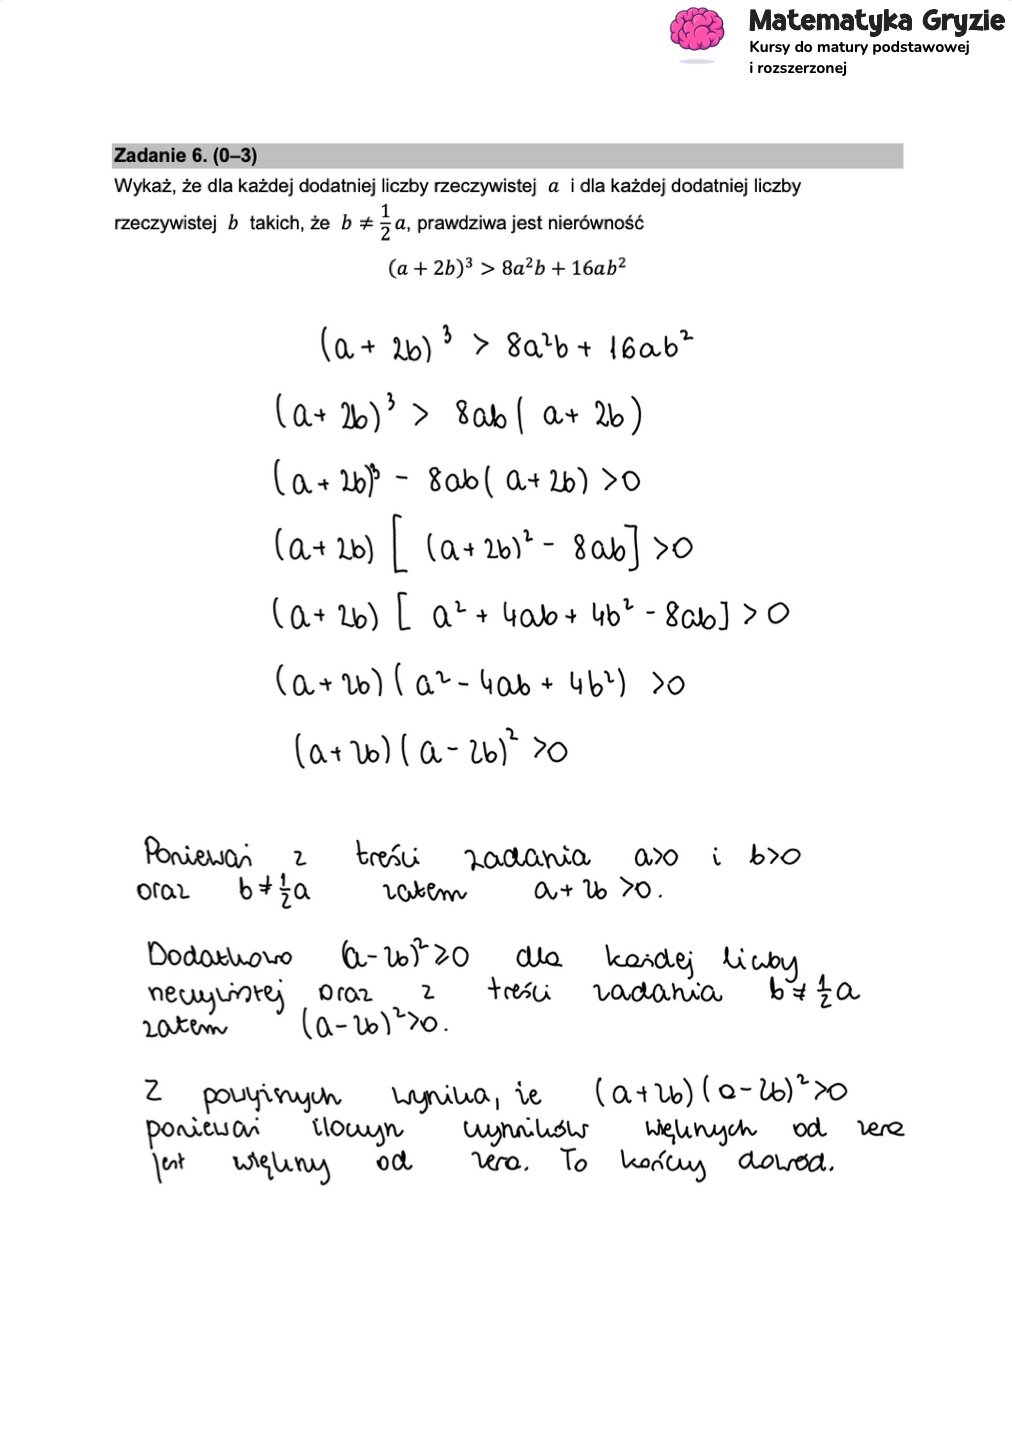 Matematyka Gryzie
Kursy do matury podstawowej
i rozszerzonej
Zadanie 6. (0–3)
Wykaż, że dla każdej dodatniej liczby rzeczywistej a i dla każdej dodatniej liczby
rzeczywistej b takich, że b ≠ 1/2 a, prawdziwa jest nierówność
(a + 2b)³ > 8a²b + 16ab²
(a + 2b)³ > 8a²b + 16ab²
(a + 2b)³ > 8ab(a + 2b)
(a + 2b)³ - 8ab(a + 2b) >0
(a + 2b) [(a + 2b)² - 8ab] >0
(a + 2b) [a² + 4ab + 4b² - 8ab] >0
(a + 2b)(a² - 4ab + 4b²) >0
(a + 2b)(a - 2b)² >0
Ponieważ z treści zadania a>0 i b>0
oraz b≠1/2a zatem a + 2b >0.
Dodatkowo (a-2b)²≥0 dla każdej liczby
rzeczywistej oraz z treści zadania b≠1/2a
zatem (a-2b)²>0.
Z powyższych wynika, że (a+2b)(a-2b)²>0
ponieważ iloczyn czynników większych od zera
jest większy od zera. To kończy dowód.